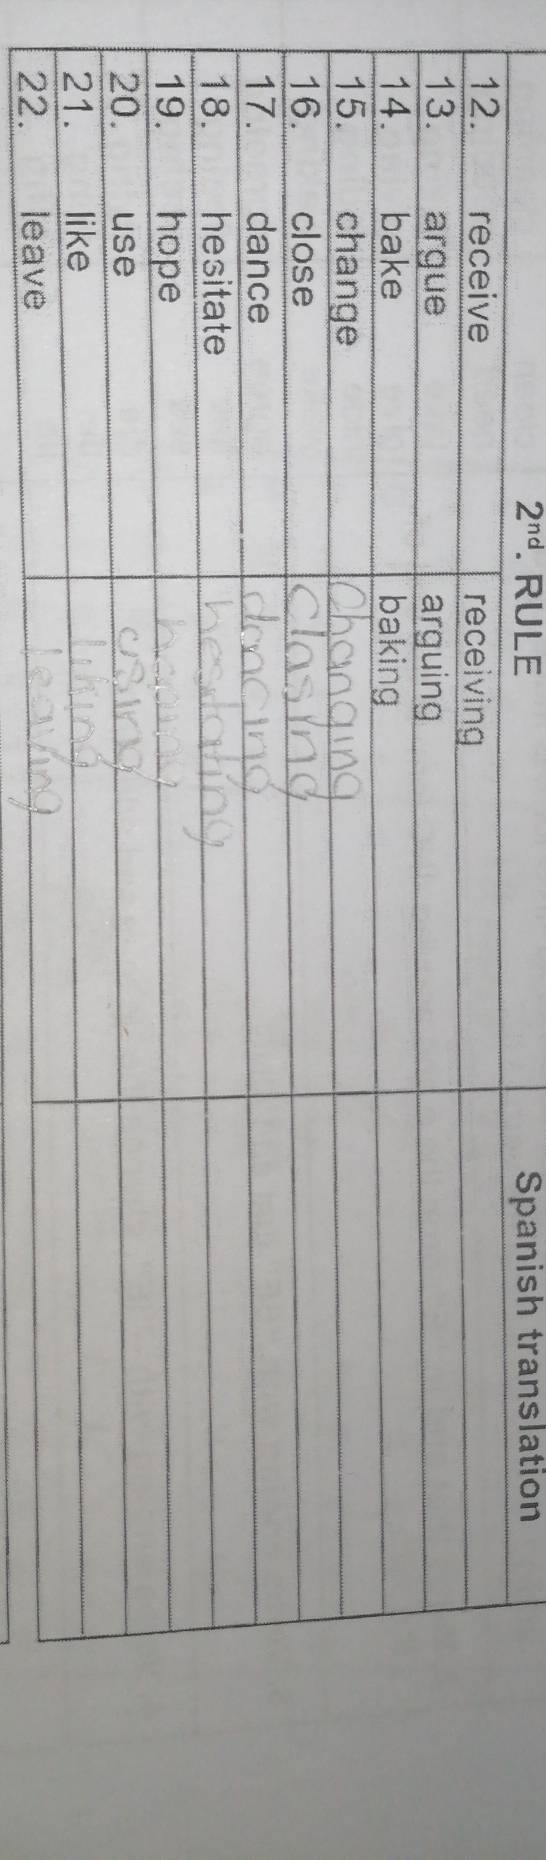 2nd. RULE Spanish translation
12. receive receiving
13. argue arguing
14. bake baking
15. change changing
16. close clasing
17. dance dancing
18. hesitate hesitating
19. hope hoping
20. use using
21. like liking
22. leave leaving